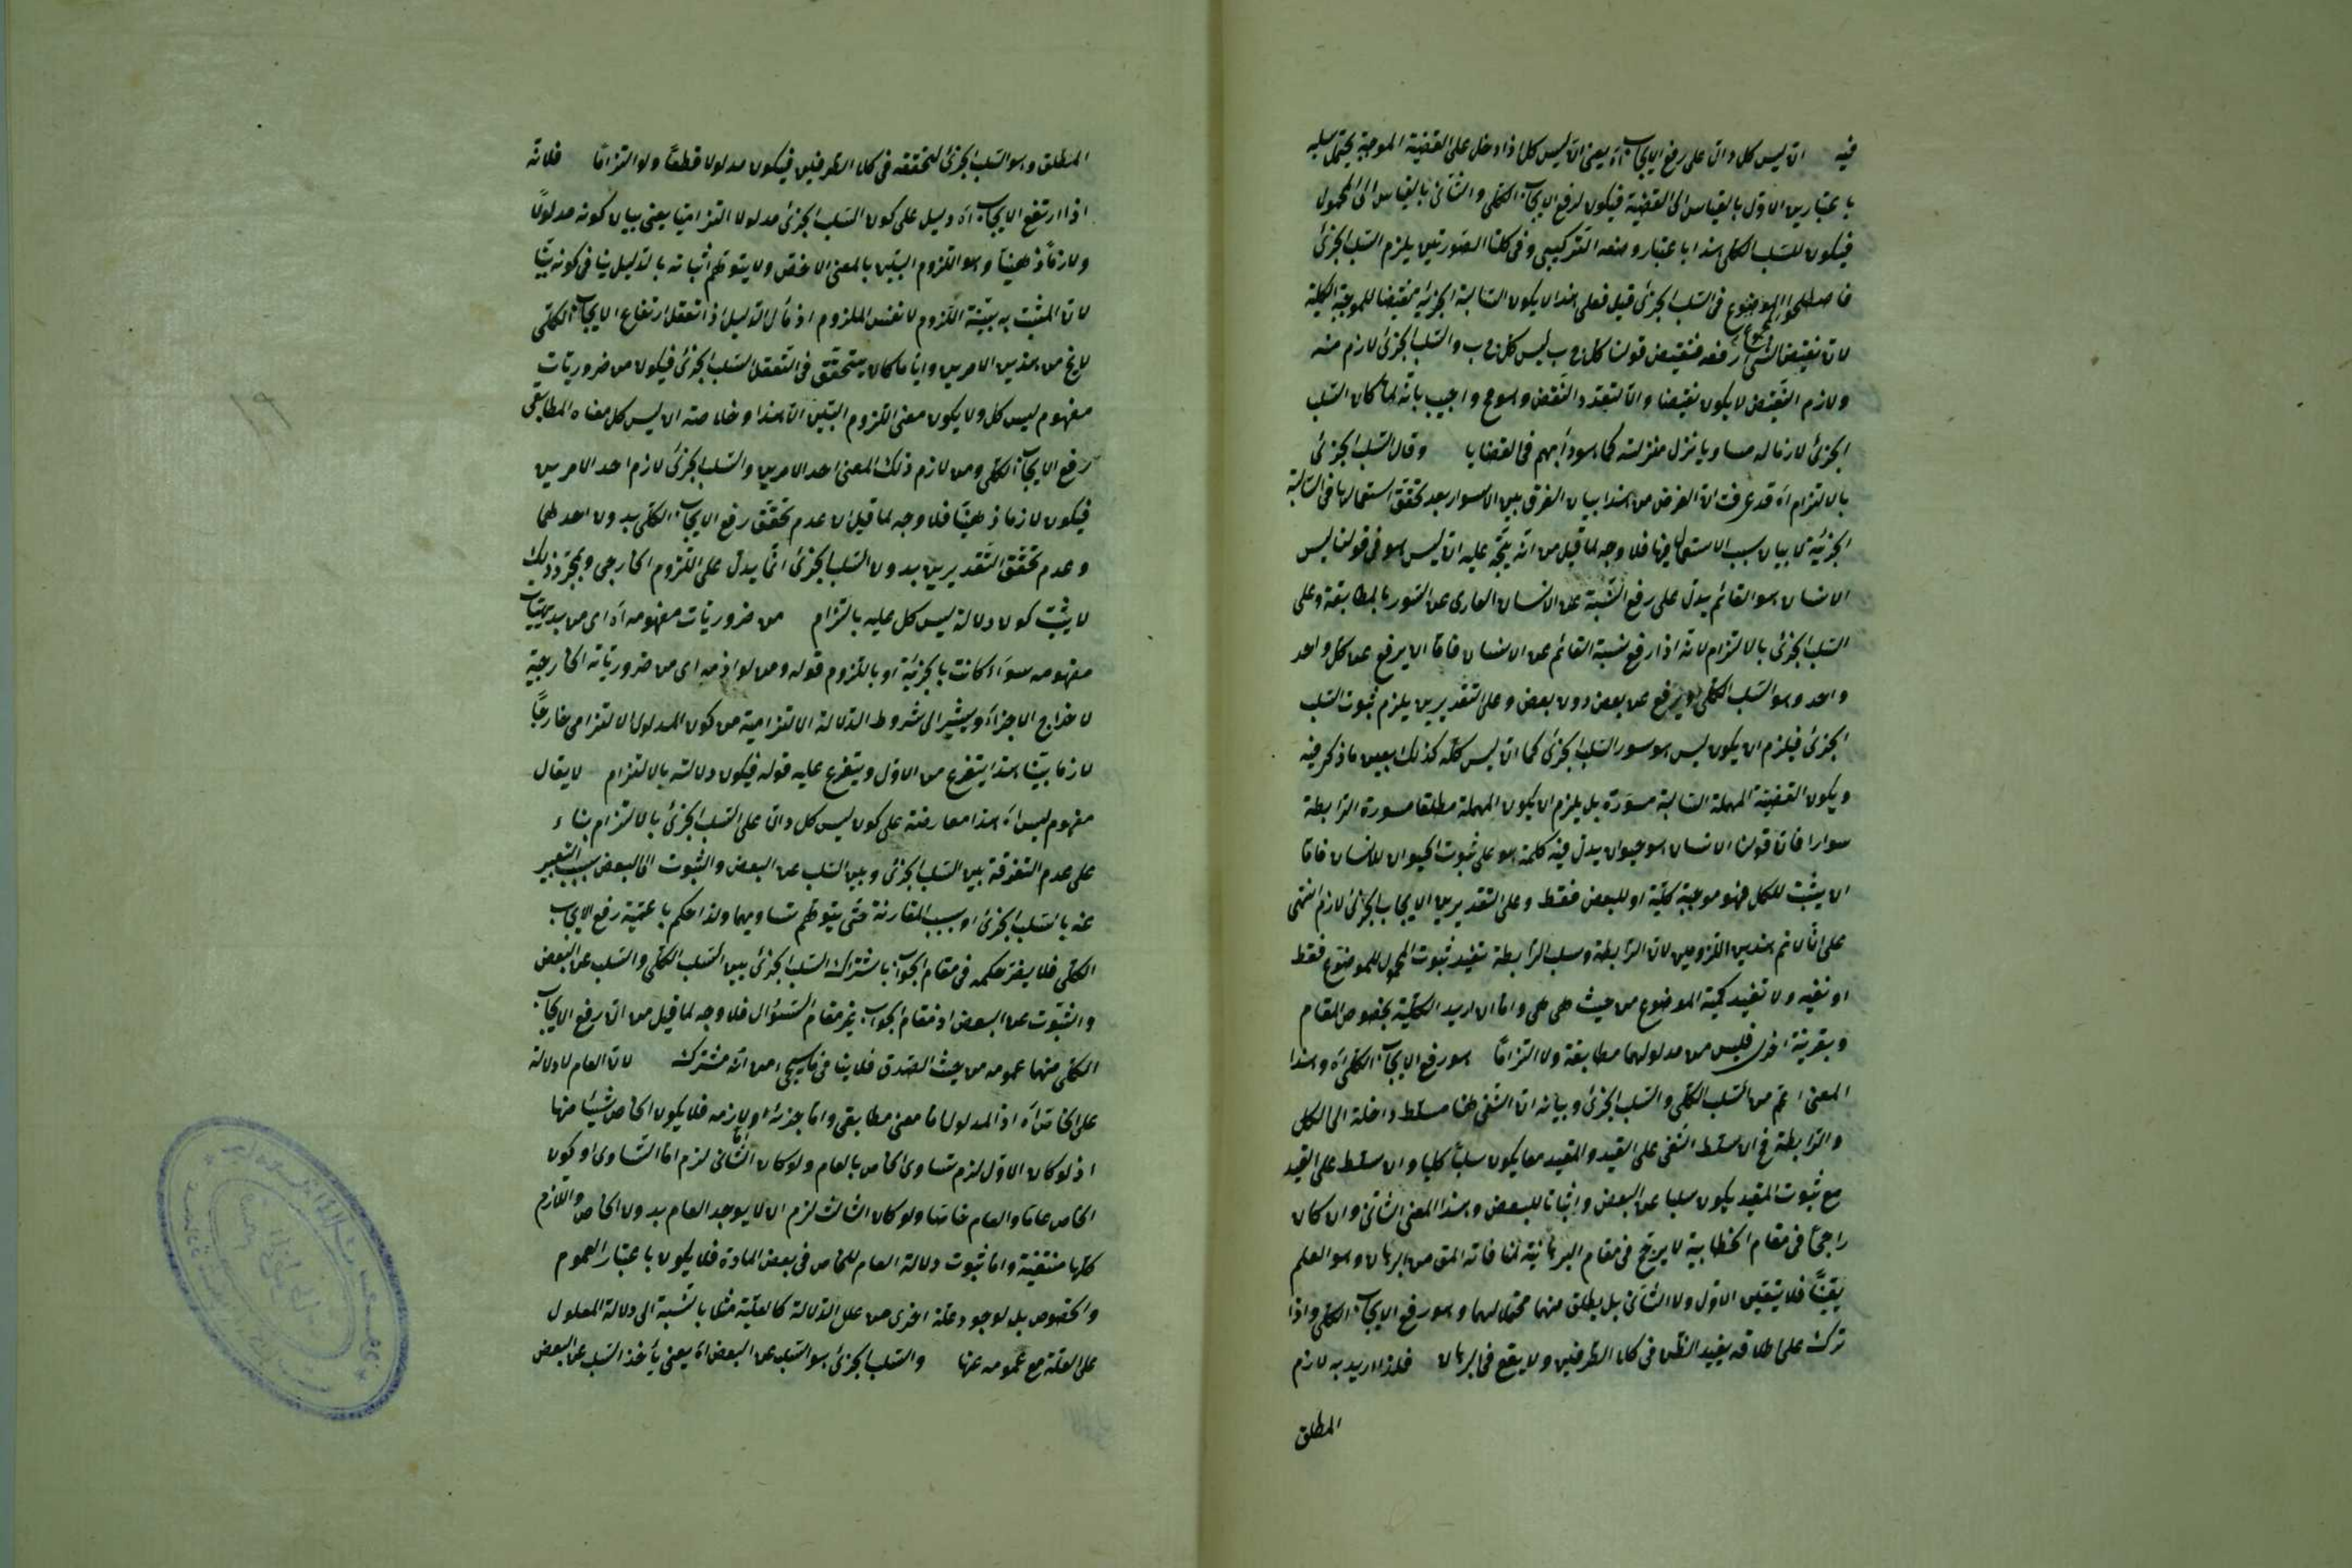 فيه ان ليس كل دال على رفع الايجاب اه يعنى ان ليس كل اذا دخل على القضية الموجبة يحتمل سلبه
باعتبارين الاول بالقياس الى القضية فيكون لرفع الايجاب الكلى والثانى بالقياس الى المحمول
فيكون للسلب الكلى هذا باعتبار وضعه التركيبى وفى كلتا الصورتين يلزم السلب الجزئى
فى السلب الجزئى قيل فعلى هذا لا يكون السالبة الجزئية نقيضا للموجبة الكلية
لان نقيض الشئ رفعه فنقيض قولنا كل ج ب ليس كل ج ب والسلب الجزئى لازم منه
ولازم النقيض لا يكون نقيضا والا لتعدد النقيض وهو مح واجيب بانه لما كان السلب
الجزئى لازما له مساويا نزل منزلته كما هو دأبهم فى القضايا وقال السلب الجزئى
بالالتزام اه قد عرفت ان الغرض من هذا بيان الفرق بين الاسوار بعد تحقق استعمالها فى السالبة
الجزئية لا بيان سبب الاستعمال فيها فلا وجه لما قيل من انه يتجه عليه ان ليس هو فى قولنا ليس
الانسان هو القائم يدل على رفع النسبة عن الانسان العارى عن السور بالمطابقة وعلى
السلب الجزئى بالالتزام لانه اذا رفع نسبة القائم عن الانسان فاما ان يرفع عن كل واحد
واحد وهو السلب الكلى او يرفع عن بعض دون بعض وعلى التقديرين يلزم ثبوت السلب
الجزئى فيلزم ان يكون ليس هو سور السلب الجزئى كما ان ليس كله كذلك بعين ما ذكر فيه
ويكون القضية المهملة السالبة مسورة بل يلزم ان يكون المهملة مطلقا مسورة الرابطة
سوارا فان قولنا الانسان هو حيوان يدل فيه كلمة هو على ثبوت الحيوان للانسان فاما
ان يثبت للكل فهو موجبة كلية او للبعض فقط وعلى التقديرين الايجاب الجزئى لازم انتهى
على انا لا نم هذين اللزومين لان الرابطة وسلب الرابطة تفيد ثبوت المحمول للموضوع فقط
او نفيه ولا تفيد كمية الموضوع من حيث هى هى واما ان اريد الكلية بخصوص المقام
وبقرينة اخرى فليس من مدلولهما مطابقة ولا التزاما هو رفع الايجاب الكلى اه وهذا
المعنى اعم من السلب الكلى والسلب الجزئى وبيانه ان النفى هنا مسلط داخلة الى الكل
والرابطة فح ان سلط النفى على القيد والمقيد معا يكون سلبا كليا وان سلط على القيد
مع ثبوت المقيد يكون سلبا عن البعض واثباتا للبعض وهذا المعنى الثانى وان كان
راجحا فى مقام الخطابية لا يرجح فى مقام البرهانية لمنافاته المق من البرهان وهو العلم
يقينا فلا يتعين الاول ولا الثانى بل يطلق منهما محتملهما وهو رفع الايجاب الكلى واذا
ترك على اطلاقه يفيد الظن فى كلا الطرفين ولا يقع فى البرهان فلذا اريد به لازم
المطلق
المطلق وهو السلب الجزئى لتحققه فى كلا الطرفين فيكون مدلولا قطعا ولو التزاما فلانه
اذا ارتفع الايجاب اه دليل على كون السلب الجزئى مدلولا التزاميا يعنى بيان كونه مدلولا
ولازما ذهنيا وهو اللزوم البين بالمعنى الاخص ولا يتوهم اثباته بالدليل ينافى كونه بينا
لان المثبت به بينية اللزوم لا نفس الملزوم اذ مأل الدليل اذا تعقل ارتفاع الايجاب الكلى
لا يخ من هذين الامرين وايا ما كان يتحقق فى التعقل السلب الجزئى فيكون من ضروريات
مفهوم ليس كل ولا يكون معنى اللزوم البين الا هذا وخلاصته ان ليس كل معناه المطابقى
رفع الايجاب الكلى ومن لازم ذلك المعنى احد الامرين والسلب الجزئى لازم احد الامرين
فيكون لازما ذهنيا فلا وجه لما قيل ان عدم تحقق رفع الايجاب الكلى بدون احدهما
وعدم تحقق التقديرين بدون السلب الجزئى انما يدل على اللزوم الخارجى وبمجرد ذلك
لا يثبت كون دلالة ليس كل عليه بالتزام من ضروريات مفهومه اه اى من بديهيات
مفهومه سواء كانت بالجزئية او باللزوم قوله ومن لوازمه اى من ضرورياته الخارجية
لاخراج الاجزاء ويشير الى شروط الدلالة الالتزامية من كون المدلول الالتزامى خارجا
لازما بينا هذا يتفرع من الاول ويتفرع عليه قوله فيكون دلالته بالالتزام لا يقال
مفهوم ليس اه هذا معارضة على كون ليس كل دالا على السلب الجزئى بالالتزام بناء
على عدم التفرقة بين السلب الجزئى وبين السلب عن البعض والثبوت الى البعض بسبب التعبير
عنه بالسلب الجزئى او بسبب المقارنة حتى يتوهم تساويهما ولذا حكم باعمية رفع الايجاب
الكلى فلا يضر حكمه فى مقام الجواب باشتراك السلب الجزئى بين السلب الكلى والسلب عن البعض
والثبوت عن البعض اذ مقام الجواب غير مقام السؤال فلا وجه لما قيل من ان رفع الايجاب
الكلى منهما عمومه من حيث الصدق فلا ينافى ما سيجئ من انه مشترك لان العام لا دلالة
على الخاص اه اذ المدلول اما معنى مطابقى واما جزئه او لازمه فلا يكون الخاص شيئا منها
اذ لو كان الاول لزم تساوى الخاص بالعام ولو كان الثانى لزم اما التساوى او كون
الخاص عاما والعام خاصا ولو كان الثالث لزم ان لا يوجد العام بدون الخاص واللازم
كلها منتفية واما ثبوت دلالة العام للخاص فى بعض المادة فلا يكون باعتبار العموم
والخصوص بل لوجود علة اخرى من علل الدلالة كالعلية مثلا بالنسبة الى دلالة المعلول
على العلة مع عمومه عنها والسلب الجزئى هو السلب عن البعض اه يعنى يأخذ السلب عن البعض